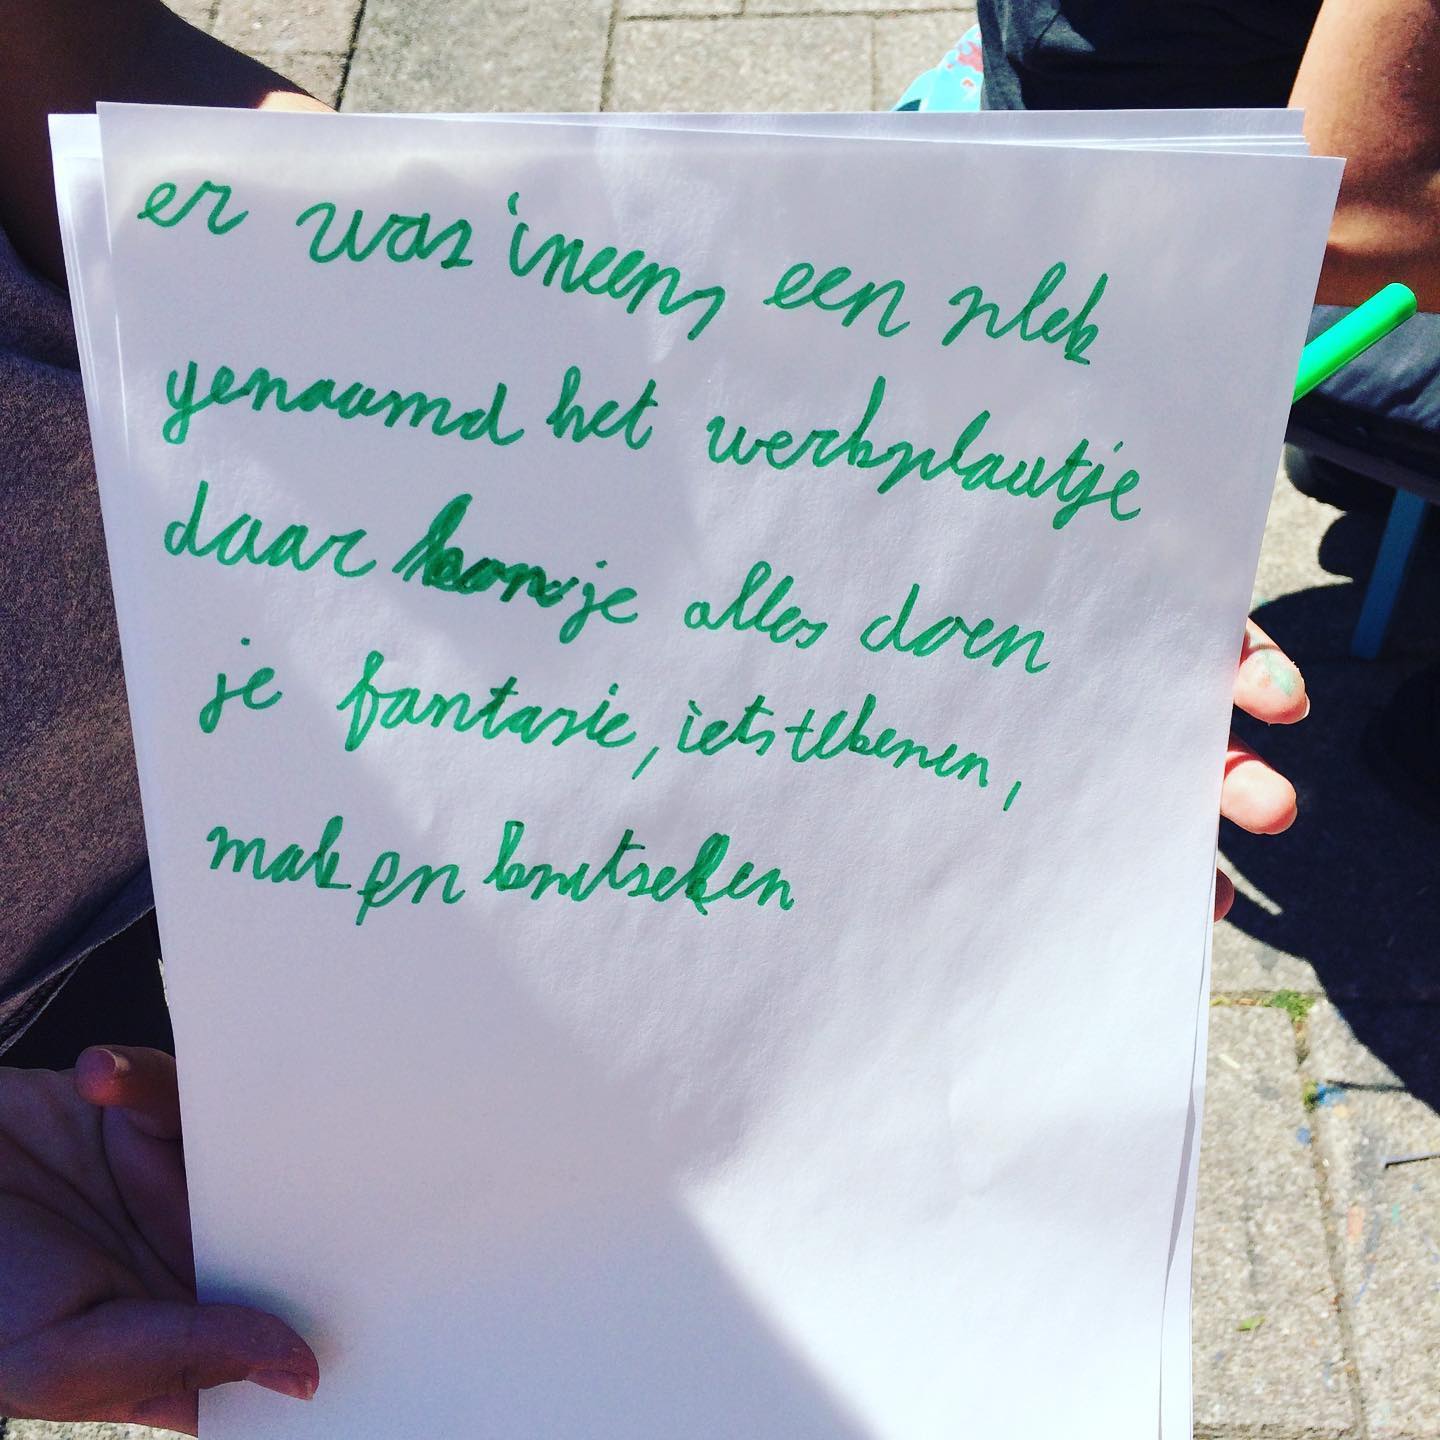 er was ineens een plek
genaamd het werkplautje
daar kon je alles doen
je fantasie, iets tekenen,
maken knutselen